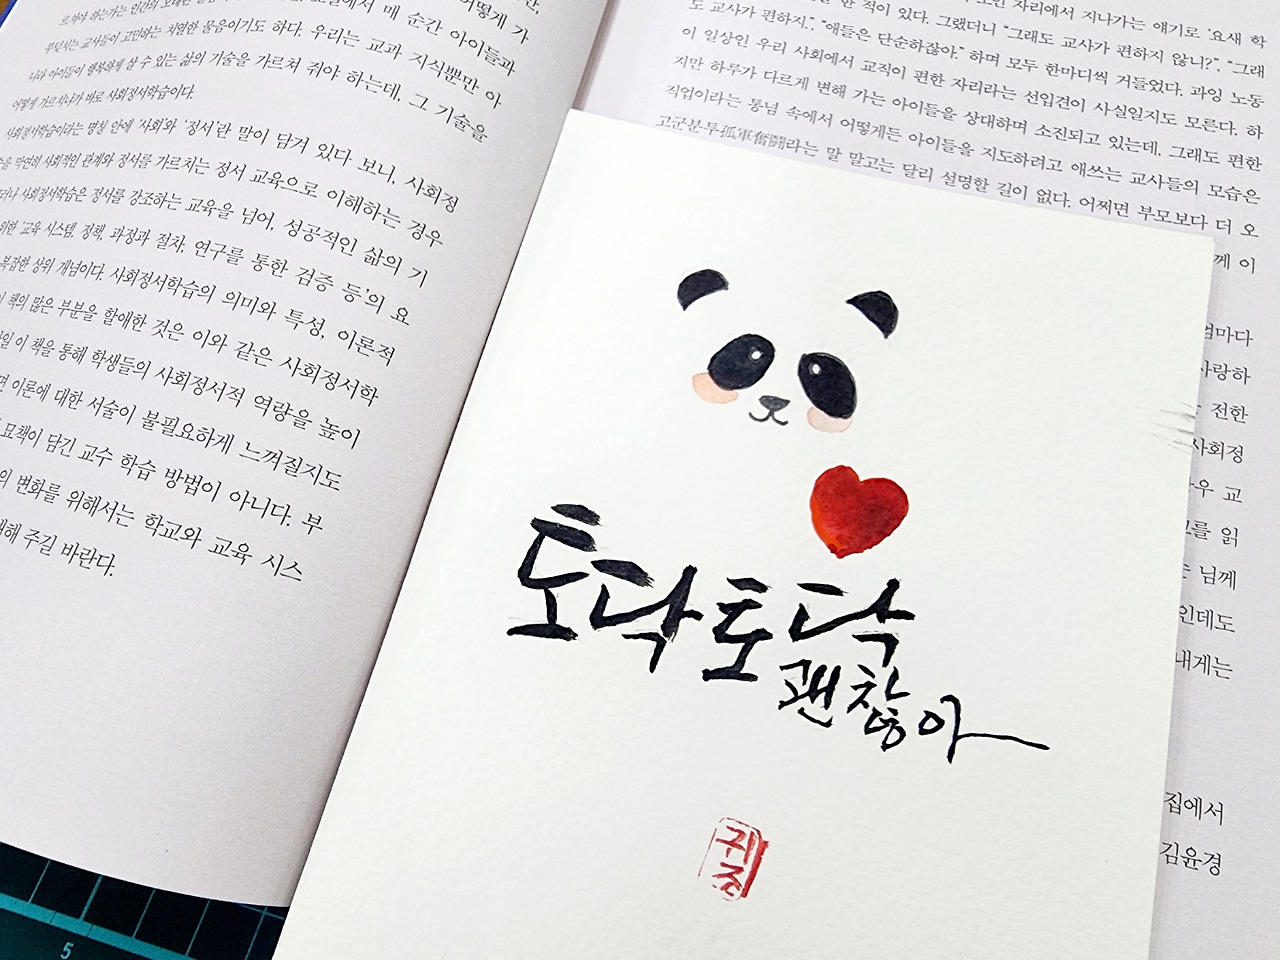 어떻게 가
교실에서 매 순간 아이들과
부딪치는 교사들이 고민하는 치열한 물음이기도 하다. 우리는 교과 지식뿐만 아
니라 아이들이 행복하게 살 수 있는 삶의 기술을 가르쳐 줘야 하는데, 그 기술을
어떻게 가르치냐가 바로 사회정서학습이다.
사회정서학습이라는 명칭 안에 '사회'와 '정서'란 말이 담겨 있다 보니, 사회정
막연히 사회적인 관계와 정서를 가르치는 정서 교육으로 이해하는 경우
사회정서학습은 정서를 강조하는 교육을 넘어, 성공적인 삶의 기
위한 '교육 시스템, 정책, 과정과 절차, 연구를 통한 검증 등'의 요
복잡한 상위 개념이다. 사회정서학습의 의미와 특성, 이론적
책의 많은 부분을 할애한 것은 이와 같은 사회정서학
이 책을 통해 학생들의 사회정서적 역량을 높이
이론에 대한 서술이 불필요하게 느껴질지도
묘책이 담긴 교수 학습 방법이 아니다. 부
변화를 위해서는 학교와 교육 시스
주길 바란다.
자리에서 지나가는 얘기로 '요새 학
한 적이 있다. 그랬더니 "그래도 교사가 편하지 않니?", "그래
도 교사가 편하지.", "애들은 단순하잖아." 하며 모두 한마디씩 거들었다. 과잉 노동
이 일상인 우리 사회에서 교직이 편한 자리라는 선입견이 사실일지도 모른다. 하
지만 하루가 다르게 변해 가는 아이들을 상대하며 소진되고 있는데, 그래도 편한
직업이라는 통념 속에서 어떻게든 아이들을 지도하려고 애쓰는 교사들의 모습은
고군분투孤軍奮鬪라는 말 말고는 달리 설명할 길이 없다. 어쩌면 부모보다 더 오
께 이
전한
사회정
우 교
읽
님께
인데도
내게는
집에서
김윤경
토닥토닥
괜찮아
귀조
5